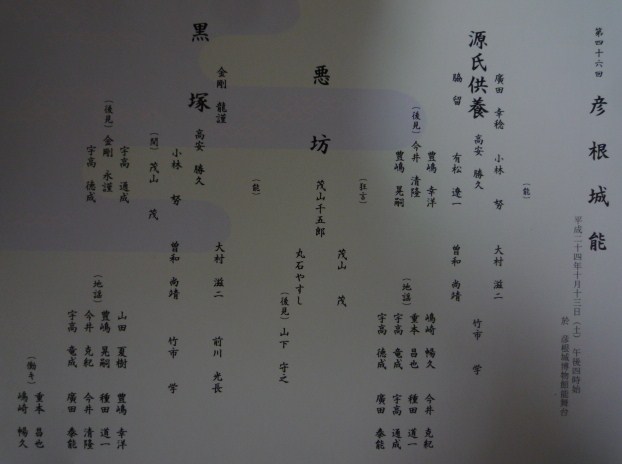 第四十六回 彦根城能
平成二十四年十月十三日（土） 午後四時始
於 彦根城博物館能舞台
（能）
廣田 幸稔 小林 努 大村 滋二
源氏供養 高安 勝久 竹市 学
脇留 有松 遼一 曽和 尚靖
（後見）今井 清隆 豊嶋 幸洋 豊嶋 晃嗣
（地謡）嶋崎 暢久 今井 克紀
重本 昌也 種田 道一
宇高 竜成 宇高 通成
宇高 徳成 廣田 泰能
（狂言）
茂山 茂
悪坊 茂山千五郎
丸石やすし
（後見）山下 守之
（能）
金剛 龍謹 大村 滋二 前川 光長
黒塚 高安 勝久
小林 努 曽和 尚靖 竹市 学
（間）茂山 茂
（後見）金剛 永謹 宇高 通成 宇高 徳成
（地謡）山田 夏樹 豊嶋 幸洋
豊嶋 晃嗣 種田 道一
今井 克紀 今井 清隆
宇高 竜成 廣田 泰能
（働キ）重本 昌也
嶋崎 暢久